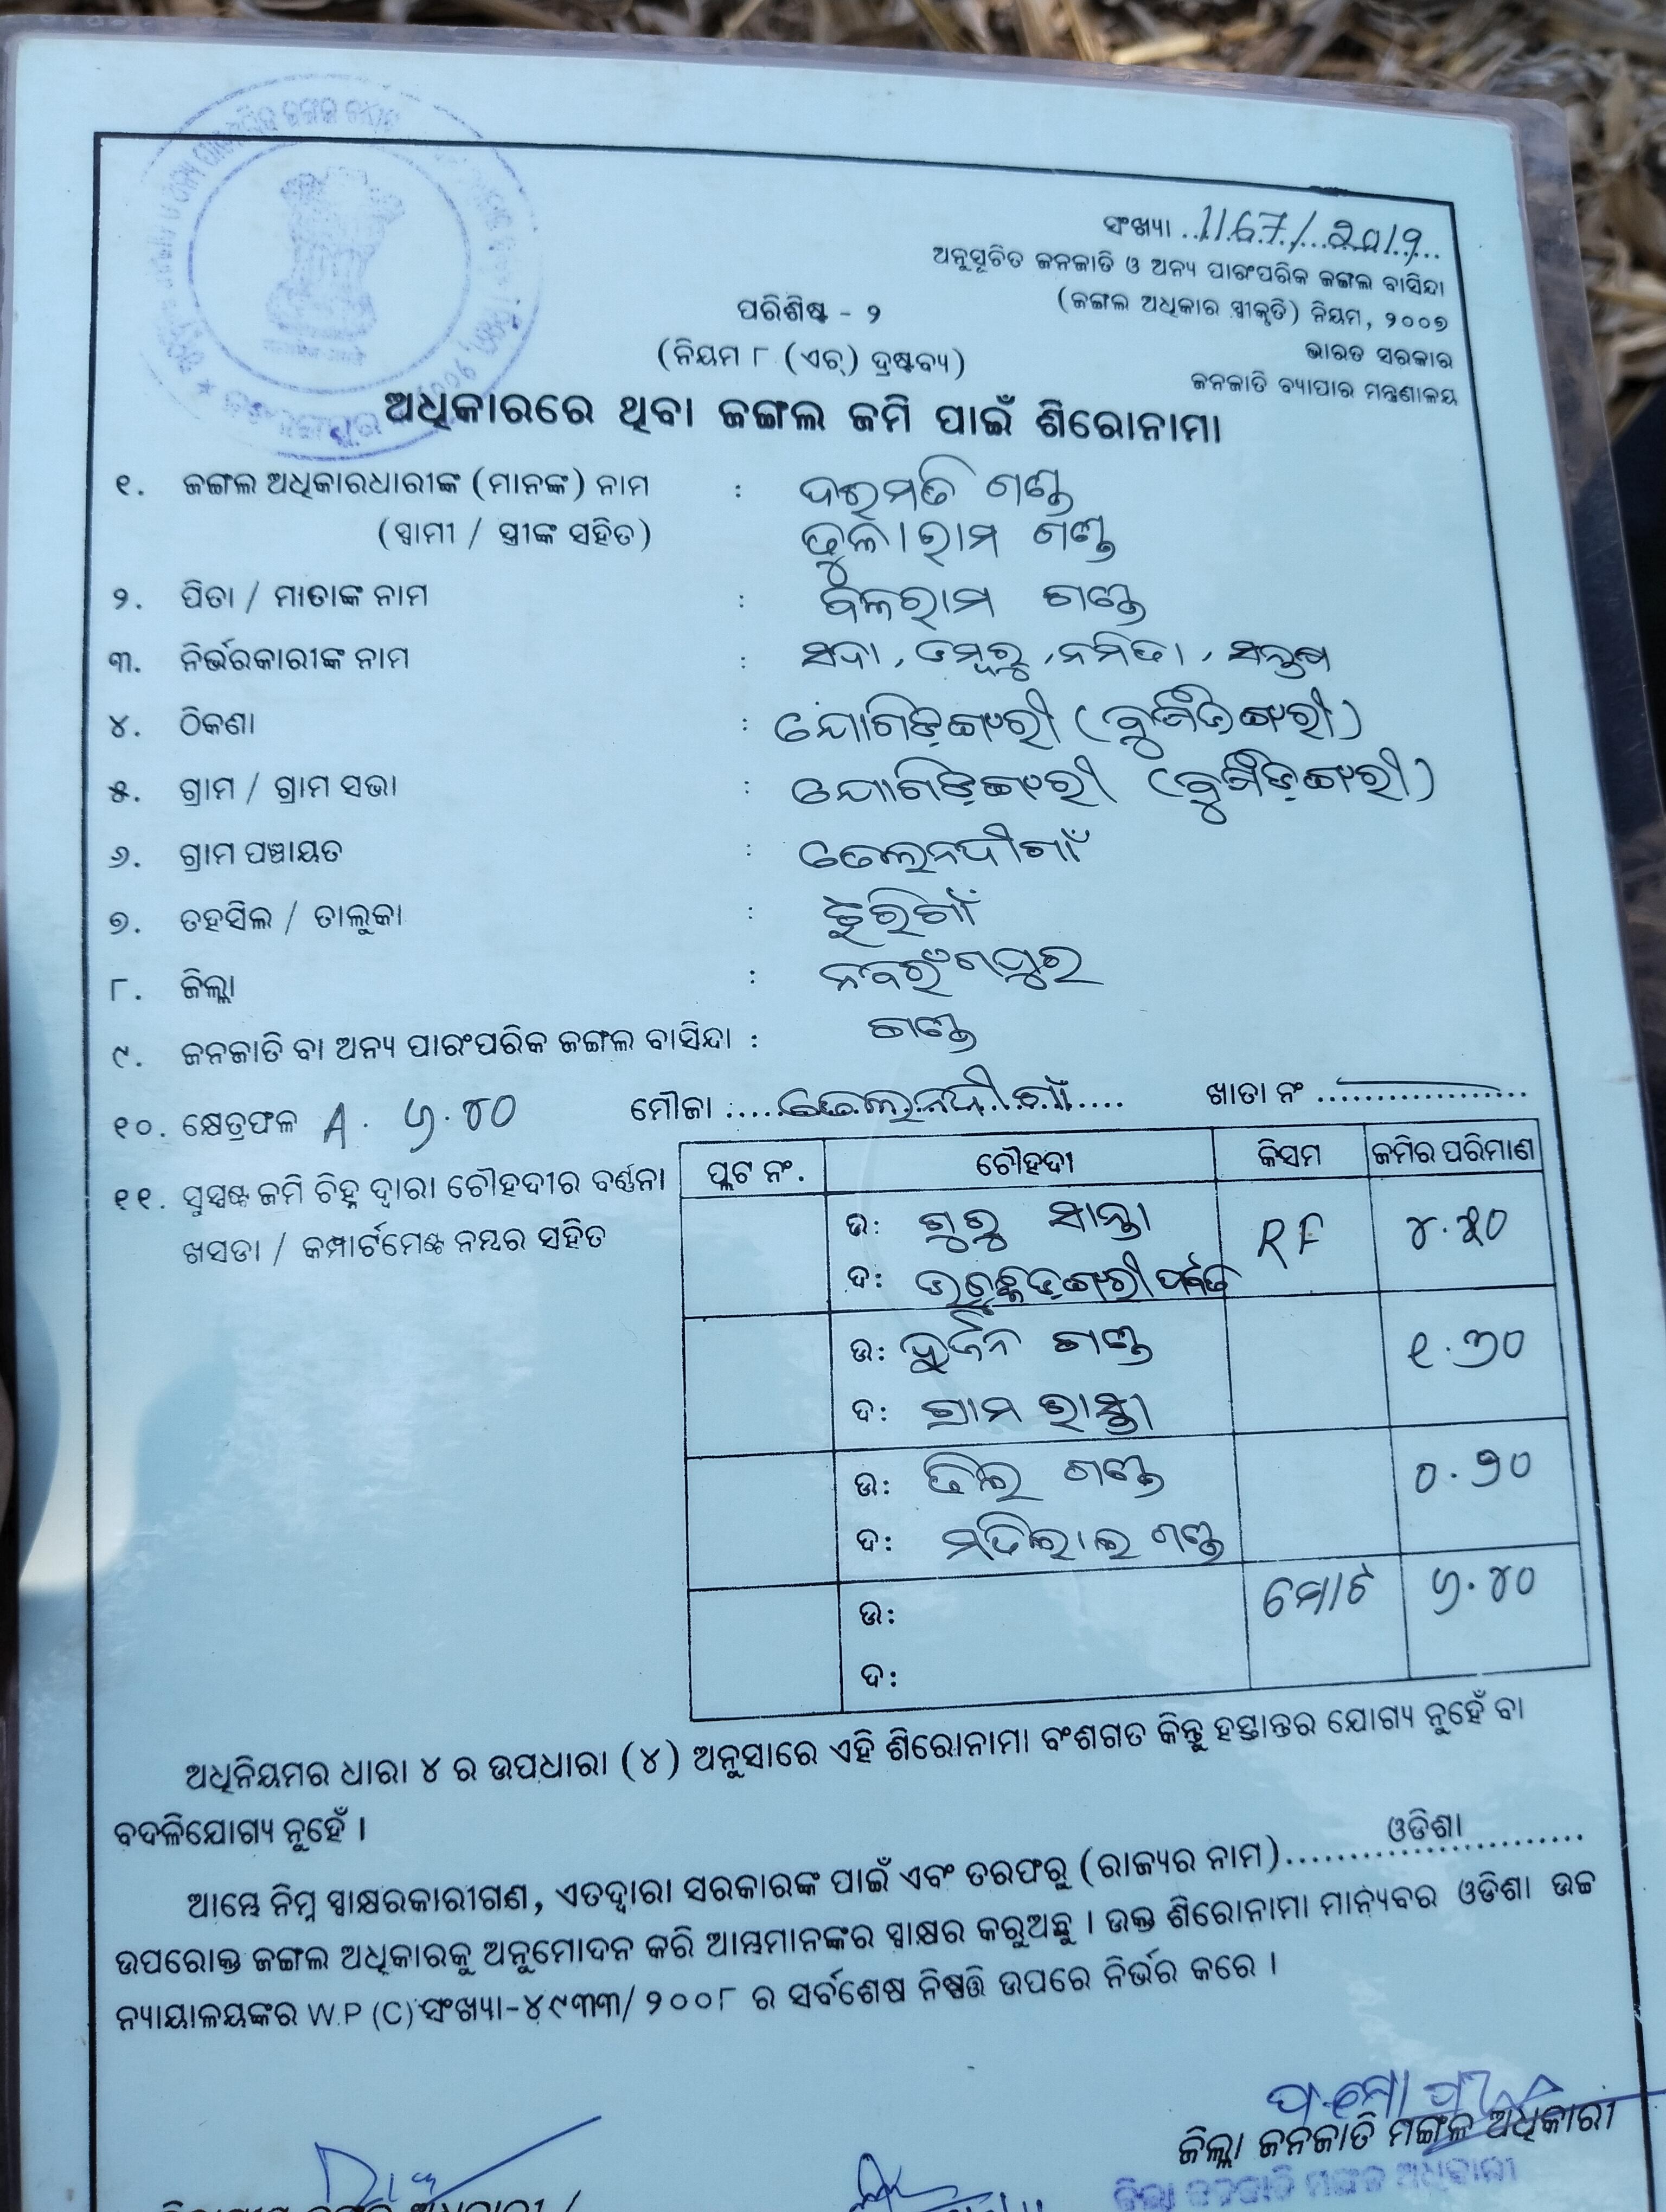 ସଂଖ୍ୟା ..1167/2019..
ଅନୁସୂଚିତ ଜନଜାତି ଓ ଅନ୍ୟ ପାରଂପରିକ ଜଙ୍ଗଲ ବାସିନ୍ଦା
(ଜଙ୍ଗଲ ଅଧିକାର ସ୍ୱୀକୃତି) ନିୟମ, ୨୦୦୭
ଭାରତ ସରକାର
ଜନଜାତି ବ୍ୟାପାର ମନ୍ତ୍ରଣାଳୟ
ପରିଶିଷ୍ଟ - ୨
(ନିୟମ ୮ (ଏଚ୍) ଦ୍ରଷ୍ଟବ୍ୟ)
ଅଧିକାରରେ ଥିବା ଜଙ୍ଗଲ ଜମି ପାଇଁ ଶିରୋନାମା
୧. ଜଙ୍ଗଲ ଅଧିକାରଧାରୀଙ୍କ (ମାନଙ୍କ) ନାମ : ଦଇମତି ଗଣ୍ଡ
(ସ୍ୱାମୀ / ସ୍ତ୍ରୀଙ୍କ ସହିତ) ଢୁଳାରାମ ଗଣ୍ଡ
୨. ପିତା / ମାତାଙ୍କ ନାମ : ବଳରାମ ଗଣ୍ଡ
୩. ନିର୍ଭରକାରୀଙ୍କ ନାମ : ସଦା, ଡମ୍ବରୁ, ନମିତା, ସନ୍ତୋଷ
୪. ଠିକଣା : ଯୋଗିଡ଼ଙ୍ଗରୀ
୫. ଗ୍ରାମ / ଗ୍ରାମ ସଭା : ଯୋଗିଡ଼ଙ୍ଗରୀ
୬. ଗ୍ରାମ ପଞ୍ଚାୟତ : ତେଲନଦୀଗାଁ
୭. ତହସିଲ / ତାଲୁକା : ଝରିଗାଁ
୮. ଜିଲ୍ଲା : ନବରଂଗପୁର
୯. ଜନଜାତି ବା ଅନ୍ୟ ପାରଂପରିକ ଜଙ୍ଗଲ ବାସିନ୍ଦା : ଗଣ୍ଡ
୧୦. କ୍ଷେତ୍ରଫଳ A. ୬.୪୦ ମୌଜା :....ତେଲନଦୀଗାଁ.... ଖାତା ନଂ ..................
୧୧. ସୁସ୍ପଷ୍ଟ ଜମି ଚିହ୍ନ ଦ୍ୱାରା ଚୌହଦୀର ବର୍ଣ୍ଣନା
ଖସଡା / କମ୍ପାର୍ଟମେଣ୍ଟ ନମ୍ବର ସହିତ
ପ୍ଲଟ ନଂ. ଚୌହଦୀ କିସମ ଜମିର ପରିମାଣ
ଉ: ଗୁରୁ ସାନ୍ତା RF ୪.୫୦
ଦ: ପର୍ବତ
ଉ: ଦୁର୍ଜନ ଗଣ୍ଡ ୧.୩୦
ଦ: ଗ୍ରାମ ରାସ୍ତା
ଉ: ତିଲ ଗଣ୍ଡ ୦.୬୦
ଦ: ମତିଲାଲ ଗଣ୍ଡ
ଉ: ମୋଟ ୬.୪୦
ଦ:
ଅଧିନିୟମର ଧାରା ୪ ର ଉପଧାରା (୪) ଅନୁସାରେ ଏହି ଶିରୋନାମା ବଂଶଗତ କିନ୍ତୁ ହସ୍ତାନ୍ତର ଯୋଗ୍ୟ ନୁହେଁ ବା
ବଦଳିଯୋଗ୍ୟ ନୁହେଁ ।
ଆମ୍ଭେ ନିମ୍ନ ସ୍ୱାକ୍ଷରକାରୀଗଣ, ଏତଦ୍ୱାରା ସରକାରଙ୍କ ପାଇଁ ଏବଂ ତରଫରୁ (ରାଜ୍ୟର ନାମ).......ଓଡିଶା.......
ଉପରୋକ୍ତ ଜଙ୍ଗଲ ଅଧିକାରକୁ ଅନୁମୋଦନ କରି ଆମ୍ଭମାନଙ୍କର ସ୍ୱାକ୍ଷର କରୁଅଛୁ । ଉକ୍ତ ଶିରୋନାମା ମାନ୍ୟବର ଓଡିଶା ଉଚ୍ଚ
ନ୍ୟାୟାଳୟଙ୍କର W.P (C) ସଂଖ୍ୟା-୪୯୩୩/୨୦୦୮ ର ସର୍ବଶେଷ ନିଷ୍ପତ୍ତି ଉପରେ ନିର୍ଭର କରେ ।
ଜିଲ୍ଲା ଜନଜାତି ମଙ୍ଗଳ ଅଧିକାରୀ
ଜିଲ୍ଲା ଜନଜାତି ମଙ୍ଗଳ ଅଧିକାରୀ